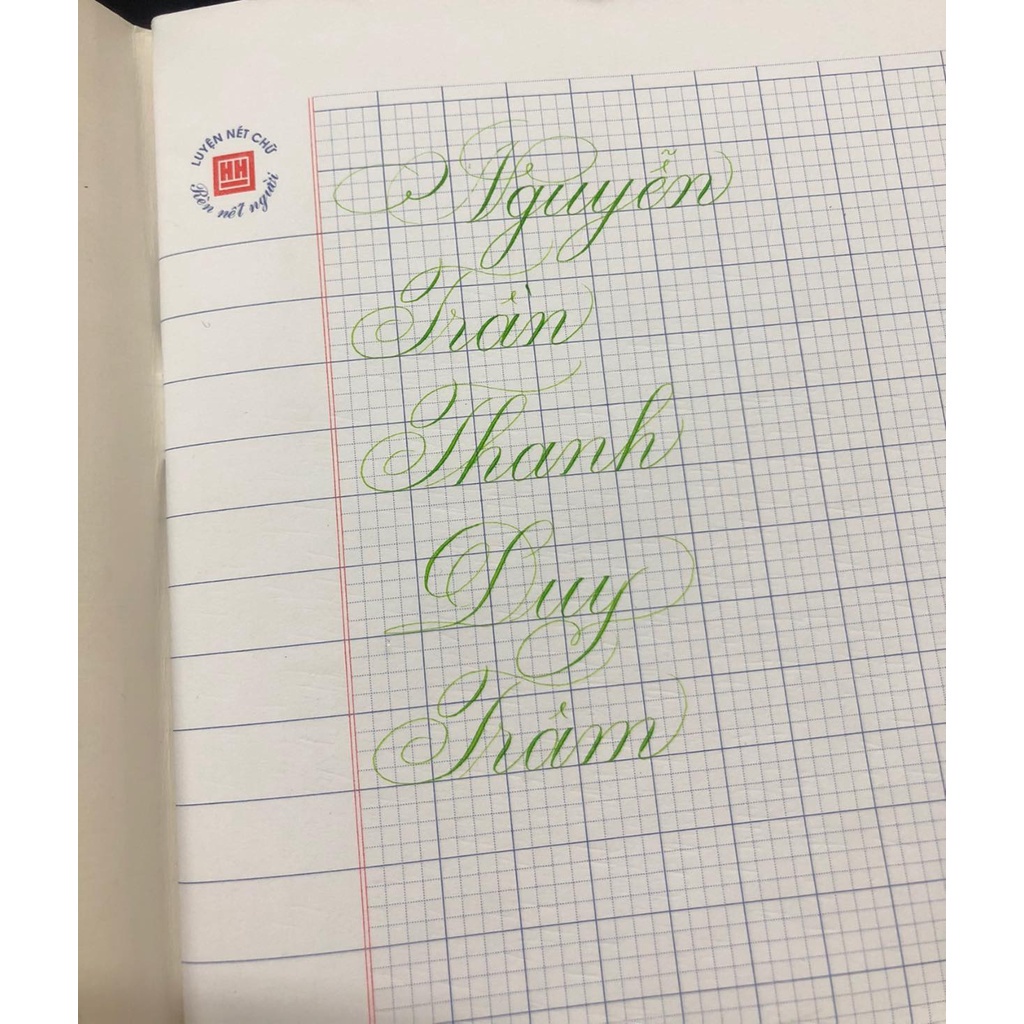 LUYỆN NÉT CHỮ
HH
Rèn nết người
Nguyễn
Trần
Thanh
Duy
Trâm